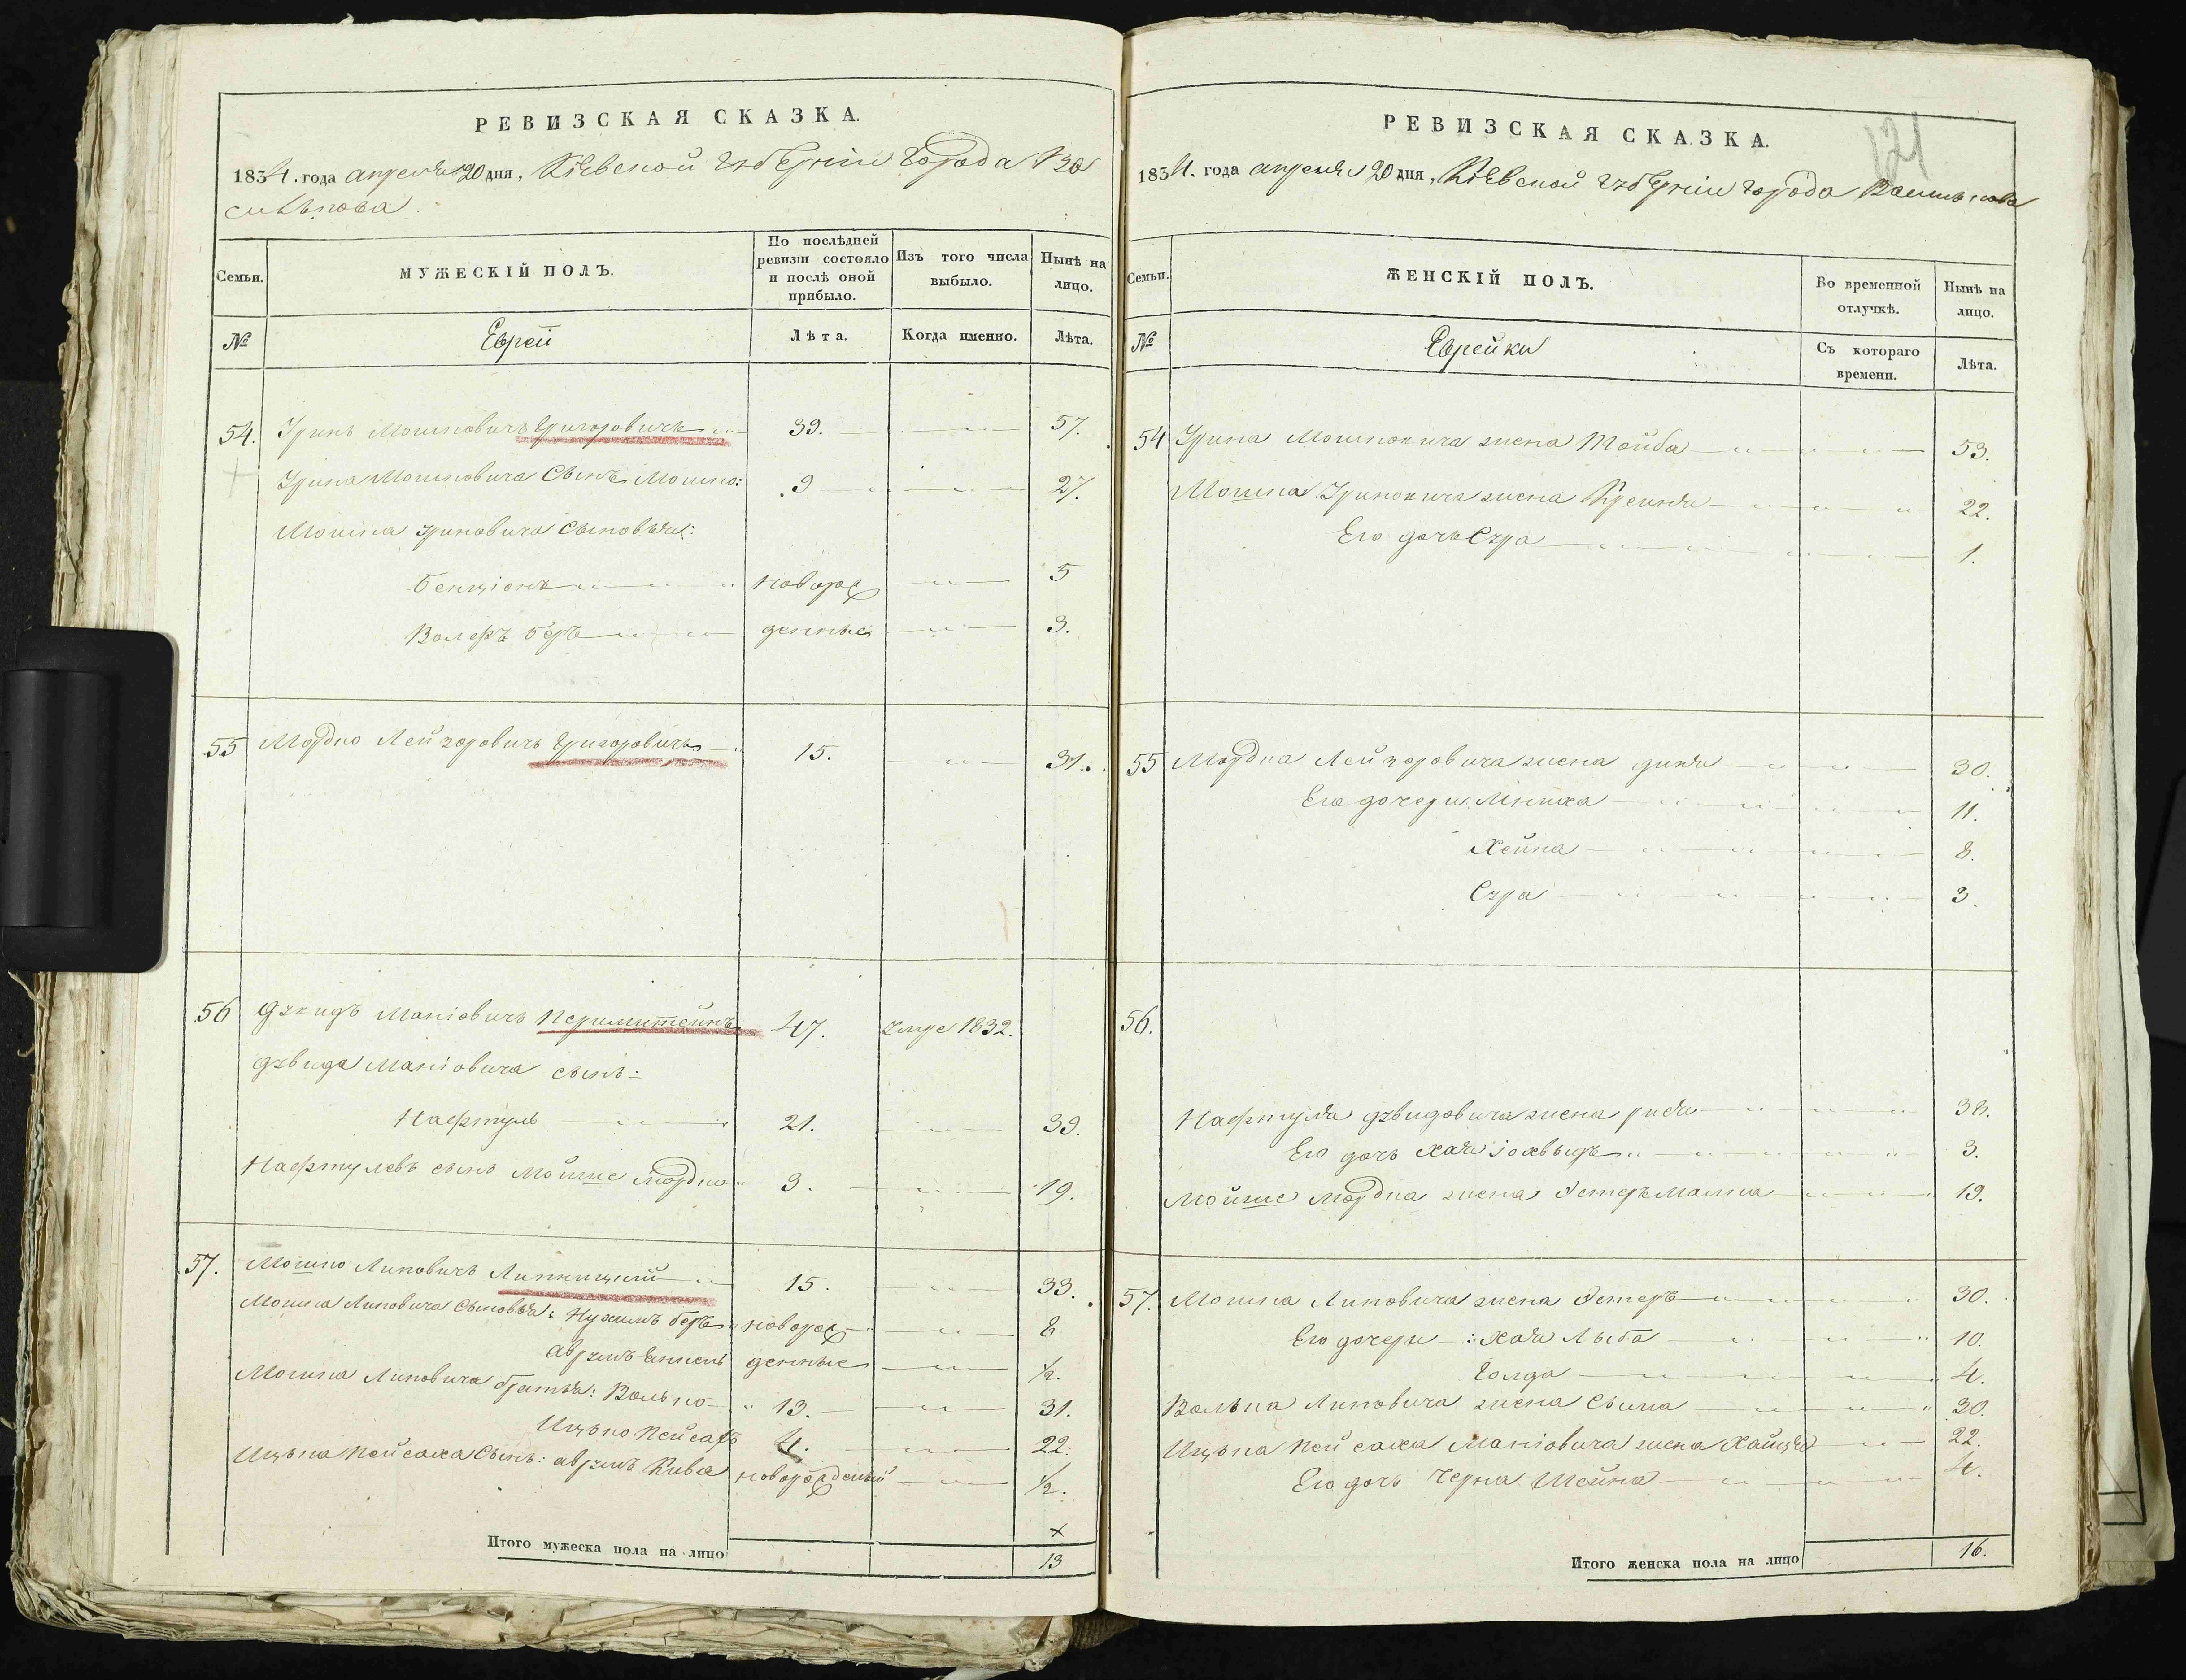 РЕВИЗСКАЯ СКАЗКА.
1834. года апреля 20 дня, Кіевской Губерніи города Ва
силькова.
Семьи.
МУЖЕСКІЙ ПОЛЪ.
По послѣдней ревизіи состояло и послѣ оной прибыло.
Изъ того числа выбыло.
Нынѣ на лицо.
№
Евреи
Лѣта.
Когда именно.
Лѣта.
54. Мошковичъ Григоровичъ 39. 57.
Мошковича Сынъ Мошко: 9 27.
Мошка Сыновья:
Бенціонъ новорож 5
Вольфъ Беръ денные 3.
55 Мордко Лейзоровичъ Григоровичъ 15. 31.
56 Давидъ Маніовичъ Перимштейнъ 47. умре 1832.
Давида Маніовича сынъ:
Нафтуль 21. 39.
Нафтулевъ сынъ Мойше Мордко 3. 19.
57. Мошко Липовичъ Липницкій 15. 33.
Мошка Липовича Сыновья: Нухимъ Беръ новорож 8
Аврумъ денные 1/2.
Мошка Липовича братья: Волько 13. 31.
Ицько Пейсахъ 4. 22.
Ицька Пейсаха Сынъ: Аврумъ Кива новорожденый 1/2.
Итого мужеска пола на лицо 13
121
РЕВИЗСКАЯ СКАЗКА.
1834. года апреля 20 дня, Кіевской Губерніи города Василькова
Семьи.
ЖЕНСКІЙ ПОЛЪ.
Во временной отлучкѣ.
Нынѣ на лицо.
№
Еврейки
Съ котораго времени.
Лѣта.
54 Мошковича жена Тойба 53.
Мошка жена Крейня 22.
Его дочь Сура 1.
55 Мордка Лейзоровича жена Диня 30.
Его дочери 11.
Хейна 8.
Сура 3.
56.
Нафтула Давидовича жена Рися 38.
Его дочь Хая Іохвыдъ 3.
Мойше Мордка жена Эстеръ Малка 19.
57. Мошка Липовича жена Эстеръ 30.
Его дочери: Хая Лыба 10.
Голда 4.
Волька Липовича жена Сыма 30.
Ицька Пейсаха Маніовича жена Хайця 22.
Его дочь Черна Шейна 4.
Итого женска пола на лицо 16.